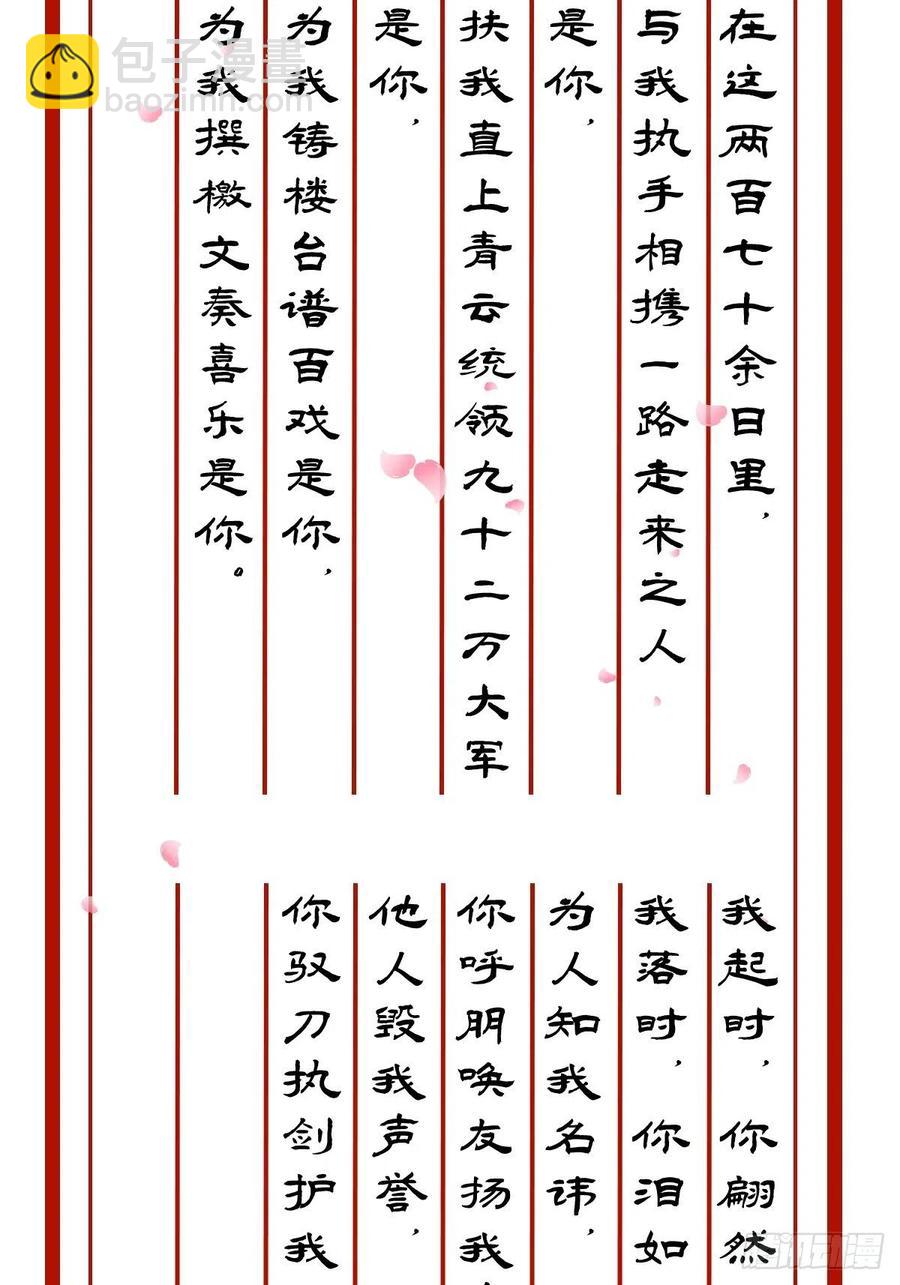 在这两百七十余日里，
与我执手相携一路走来之人
是你，
扶我直上青云统领九十二万大军
是你，
为我铸楼台谱百戏是你，
为我撰檄文奏喜乐是你。
我起时，你翩然
我落时，你泪如
为人知我名讳，
你呼朋唤友扬我
他人毁我声誉，
你驭刀执剑护我
包子漫畫
baozimh.com